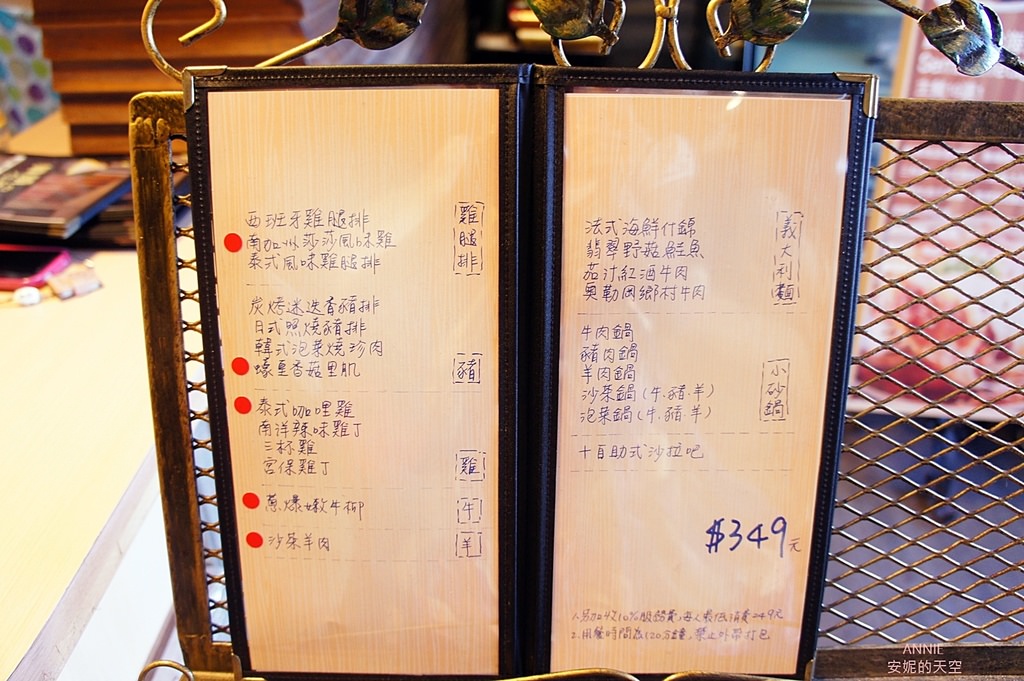 西班牙雞腿排
南加州莎莎風味雞
泰式風味雞腿排
雞腿排
炭烤迷迭香豬排
日式照燒豬排
韓式泡菜燒珍肉
蠔皇香菇里肌
豬
泰式咖哩雞
南洋辣味雞丁
三杯雞
宮保雞丁
雞
蔥爆嫩牛柳
牛
沙茶羊肉
羊
法式海鮮什錦
翡翠野菇鮭魚
茄汁紅酒牛肉
奧勒岡鄉村牛肉
義大利麵
牛肉鍋
豬肉鍋
羊肉鍋
沙茶鍋(牛.豬.羊)
泡菜鍋(牛.豬.羊)
小砂鍋
+自助式沙拉吧
$349元
1.另加收10%服務費,每人最低消費249元
2.用餐時間為120分鐘,禁止外帶打包
ANNIE
安妮的天空